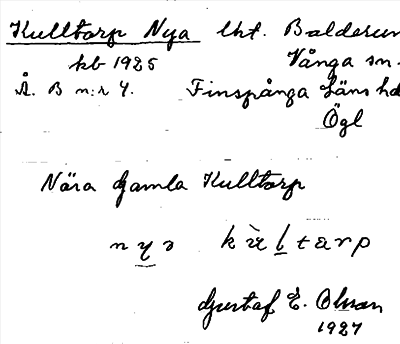 Kulltorp Nya lht. Baldersun
kb 1925 Vånga sn.
Å. B n:r 4. Finspånga Läns hd
Ögl
Nära Gamla Kulltorp
Gustaf E. Olsson
1927